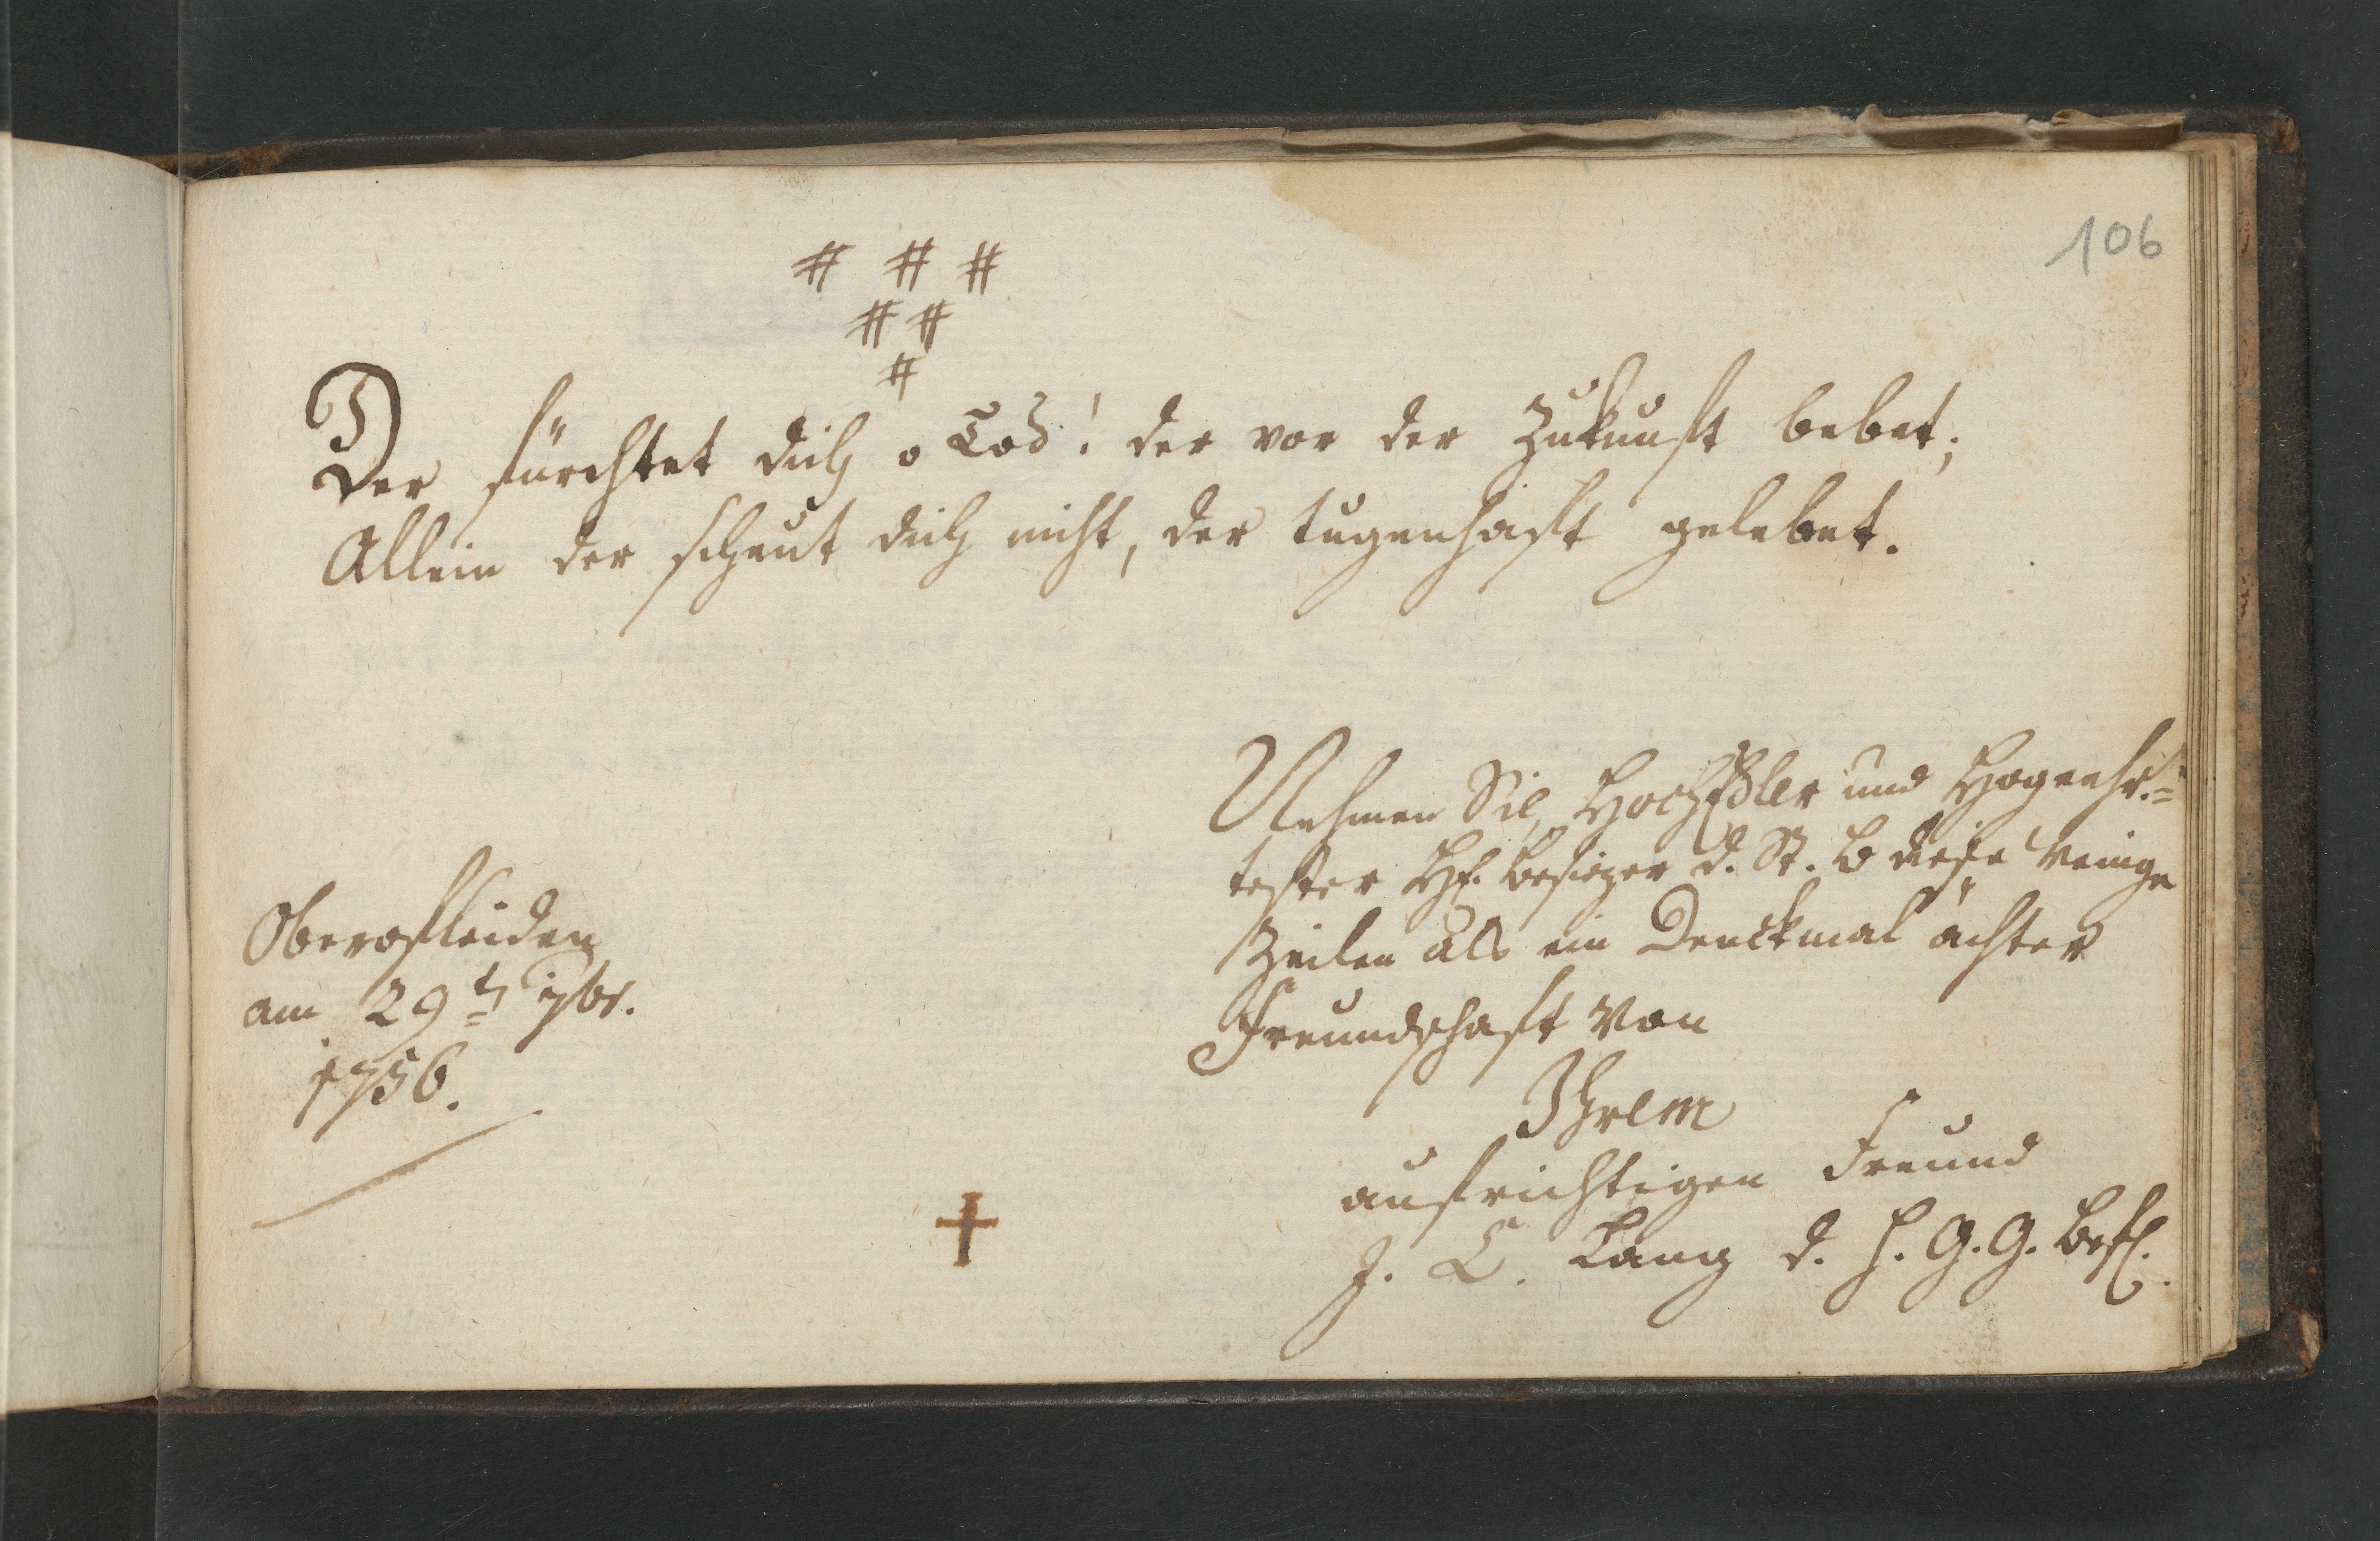 106
# # #
# #
#
Der fürchtet dich o Tod! der vor der Zukunft bebet;
Allein der scheut dich nicht, der tugenhaft gelebet.
Nehmen Sie, HochEdler und Hogeehr=
tester H. Besizer d. St. B diese wenige
Zeilen als ein Denckmal ächter
Freundschaft von
Ihrem
aufrichtigen Freund
J. C. Lang d. H. G. G. Befl.
Oberofleiden
am 29t 7br.
1756.